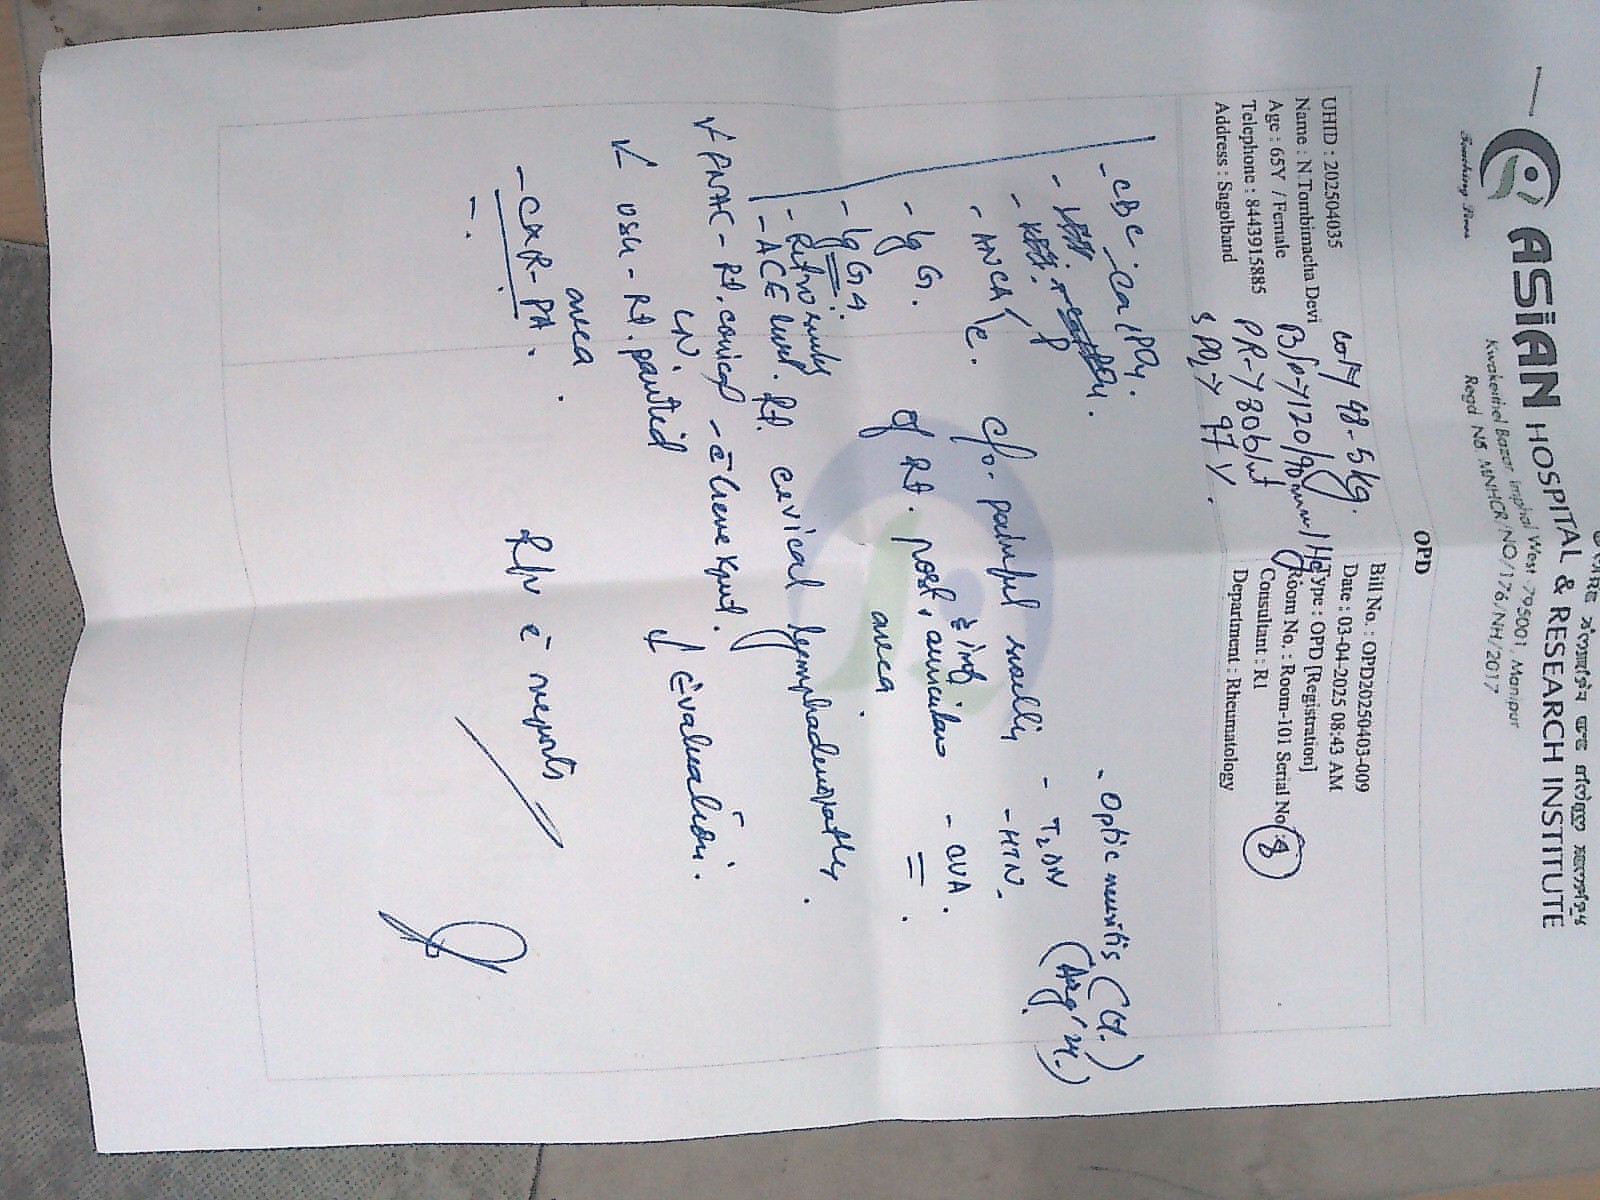 ASIAN HOSPITAL & RESEARCH INSTITUTE
Kwakeithel Bazar, Imphal West 795001, Manipur
Regd No. MNHCR/NO/176/NH/2017
OPD
UHID : 202504035
Name : N.Tombimacha Devi
Age : 65Y / Female
Telephone : 8443915885
Address : Sagolband
Bill No. : OPD20250403-009
Date : 03-04-2025 08:43 AM
Type : OPD [Registration]
Room No. : Room-101 Serial No : 8
Consultant : R1
Department : Rheumatology
48.5kg.
120/90mm/Hg
PR-
97
- CBC - Ca/PO4.
- ANCA
- IgG.
- IgG4.
- ACE level.
- Optic neuritis (Lt.)
- T2DM
- HTN.
- CVA.
c/o. painful swelling
of Rt. post. auricular
area.
Rt. cervical lymphadenopathy.
↓ Evaluation.
✓ FNAC - Rt. cervical - c Gene Xpert.
LN.
✓ USG - Rt. parotid
area.
- CXR-PA.
R/V c reports